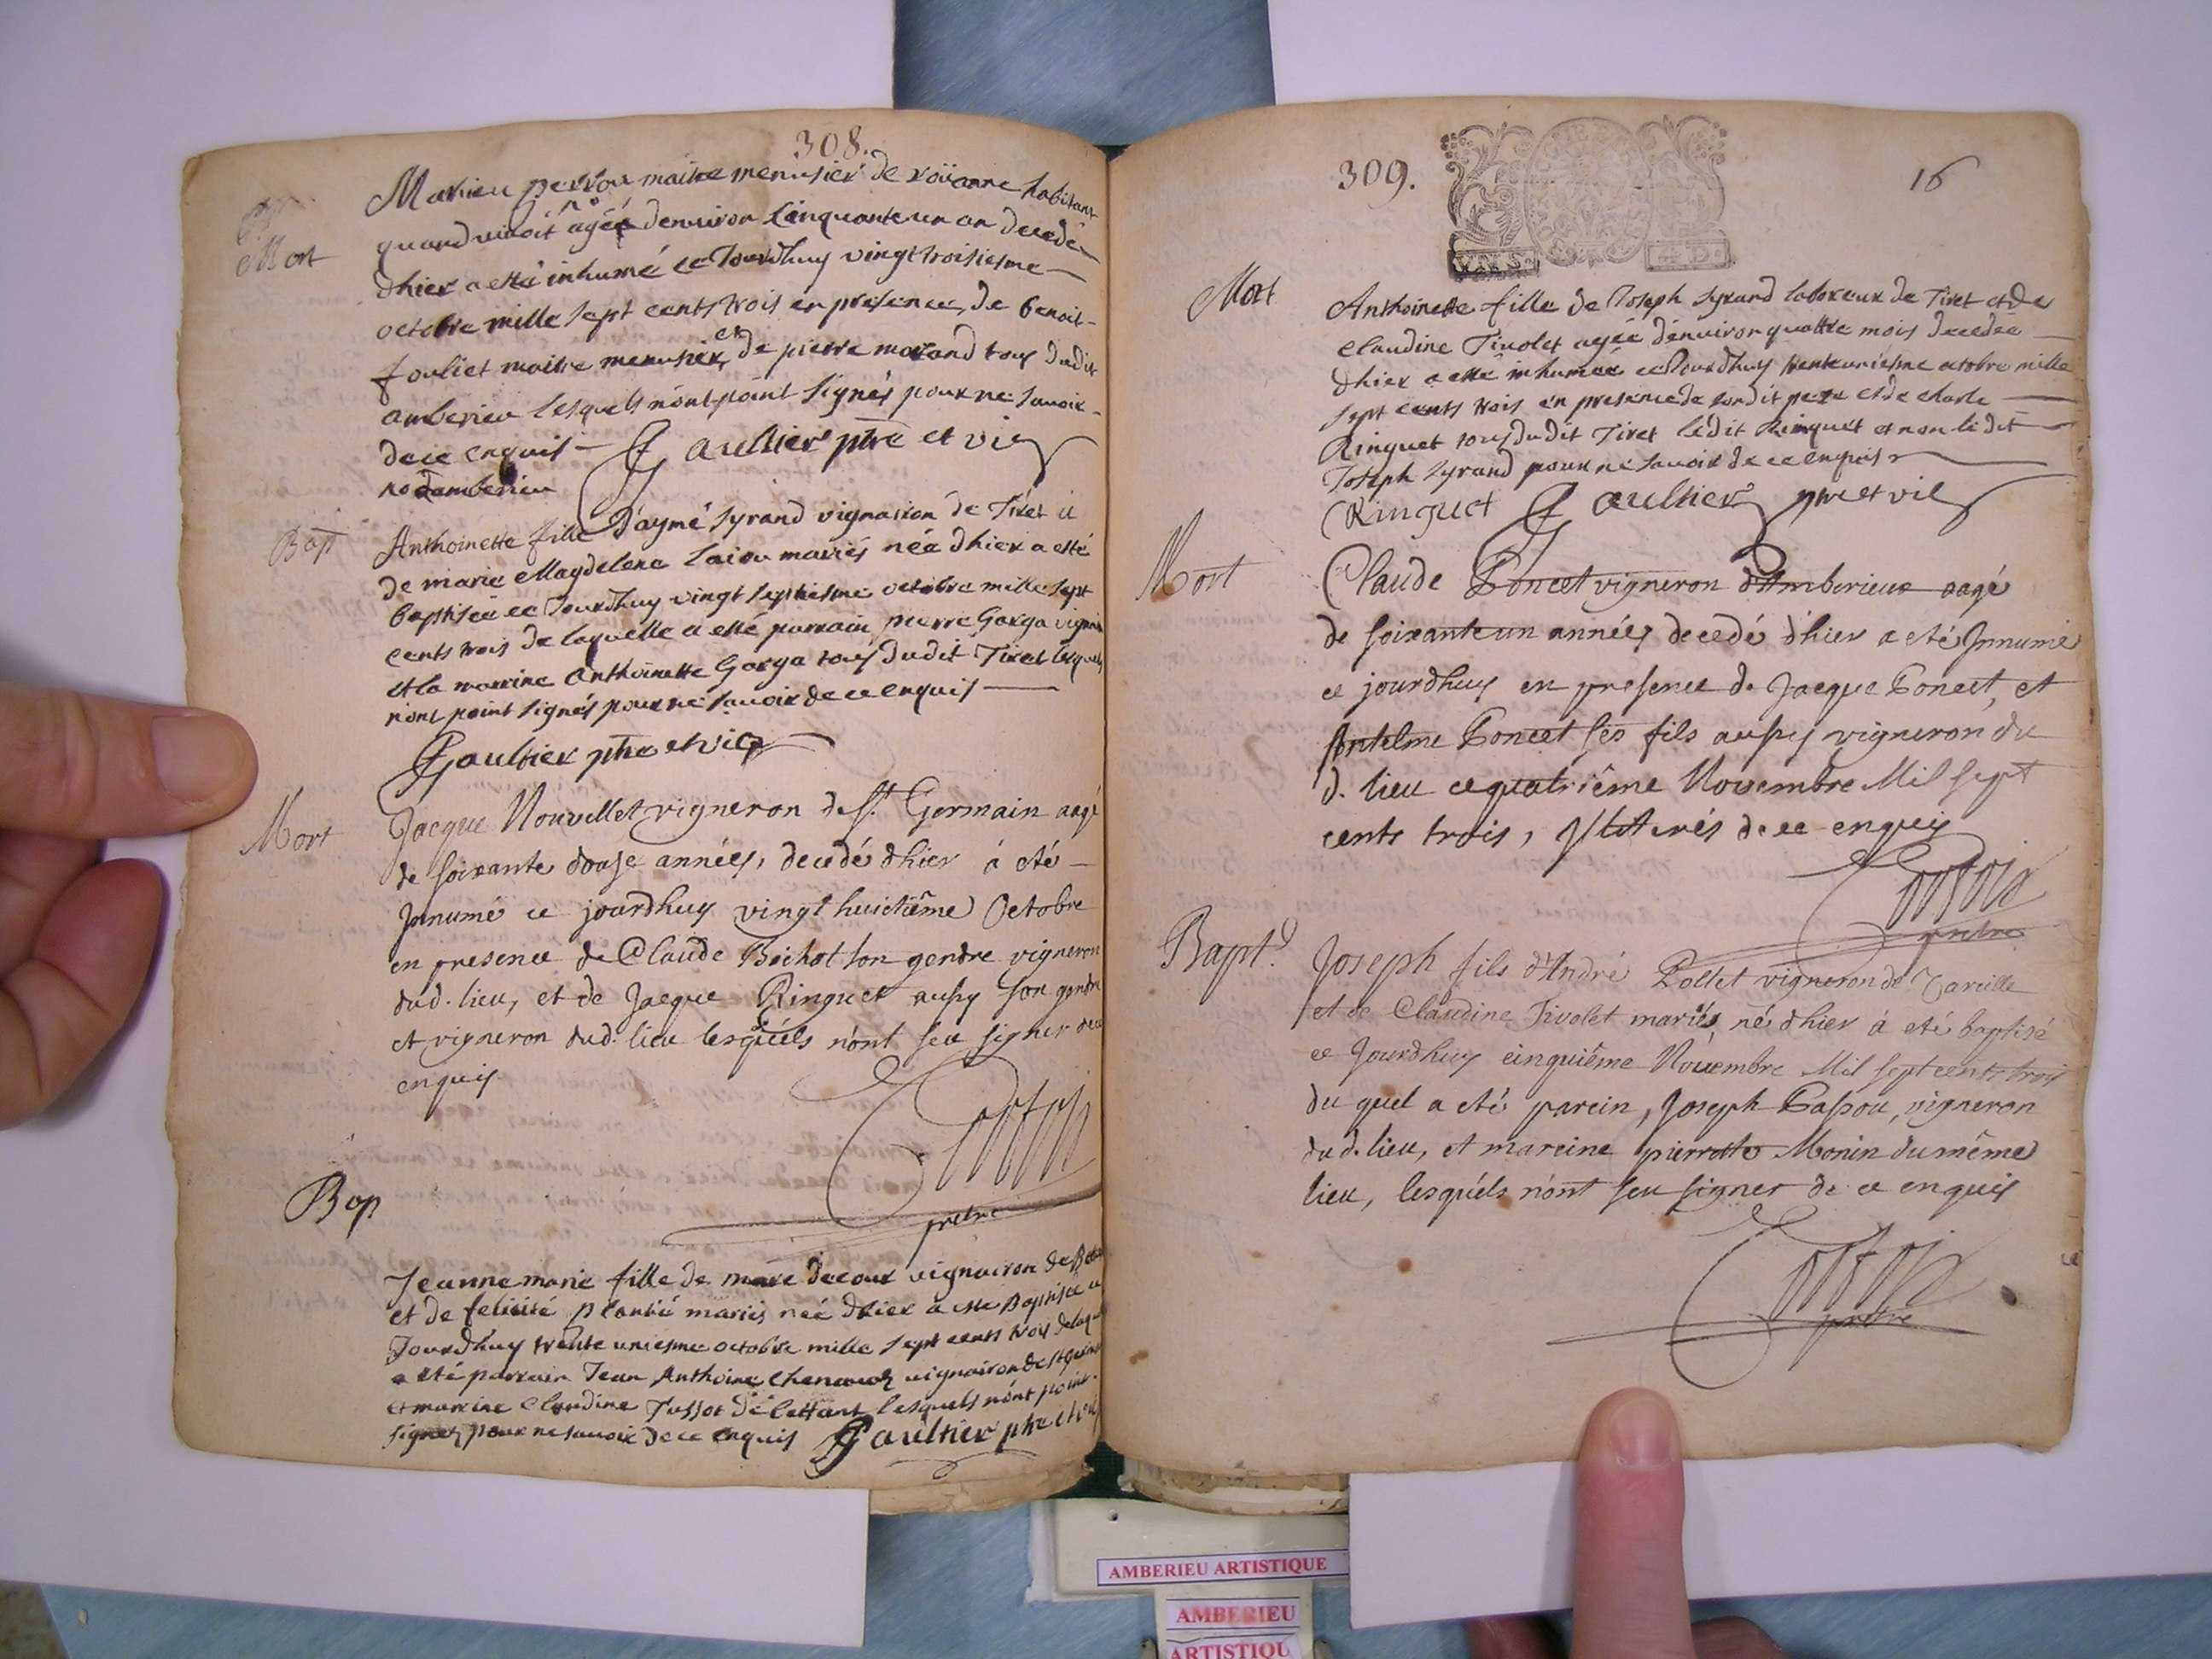 308.
Mort
Mathieu perrou maitre menusier de roüanne habitant
quand vivoit agéé denviron cinquante un an decedé
dhier a esté inhumé ce Jourdhuy vingt troisiesme
octobre mille sept cents trois en presence de benoit
fouliet maitre menusier et de pierre morand tous dudit
amberieu lesquels n'ont point signés pour ne savoir
de ce enquis Gaultier ptre et vic
no damberieu
Bap
Anthoinette fille d'aymé syrand vignairon de Tiret et
de marie Magdelene marriés née dhier a esté
baptisée ce Jourdhuy vingt septiesme octobre mille sept
cents trois de laquelle a esté parrain pierre Garga vignair
et la marrine Anthoinette Garga tous dudit Tiret lesquels
n'ont point signés pour ne savoir de ce enquis
Gaultier ptre et vic
Mort
Jacque Nouvellet vigneron de St. Germain aagé
de soixante douse années, decedé dhier à eté
Innumé ce jourdhuy vingt huictiême Octobre
en presence de Claude Bochot son gendre vigneron
dud. lieu, et de Jacque Ringuet aussy son gendre
et vigneron dud. lieu lesquels n'ont sceu signer de ce
enquis.
prêtre
Bap
Jeanne marie fille de marc decour vignairon de
et de felicité marriés née dhier a esté Baptisée ce
Jourdhuy trente uniesme octobre mille sept cents trois de laquelle
a eté parrain Jean Anthoine vignairon de St germain
et marrine Claudine Jussot de lettant lesquels n'ont point
signés pour ne savoir de ce enquis Gaultier ptre et vic
309.
16
Mort
Anthoinette fille de Joseph syrand laboreur de Tiret et de
Claudine Tivolet agéé d'environ quattre mois decedée
dhier a esté inhumée ce Jourdhuy trente uniesme octobre mille
sept cents trois en presence de sondit pere et de charle
Ringuet tous dudit Tiret ledit Ringuet et non ledit
Joseph syrand pour ne savoir de ce enquis
Ringuet Gaultier ptre et vic
Mort
Claude Poncet vigneron d'Amberieux aagé
de soixante un années decedé d'hier a eté Innumé
ce jourdhuy en presence de Jacque Poncet, et
Antelme Poncet ses fils aussy vigneron du
d. lieu ce quatriême Novembre Mil sept
cents trois, Illiterés de ce enquis
prêtre
Bapt.
Joseph fils d'André Pollet vigneron de Vareille
et de Claudine Tivolet mariés, né dhier à eté baptisé
ce Jourdhuy cinquiême Novembre Mil sept cents trois
du quel a eté parein, Joseph Passou, vigneron
dud. lieu, et mareine pierrette Monin du même
lieu, lesquéls n'ont sceu signer de ce enquis
prêtre
AMBERIEU ARTISTIQUE
AMBERIEU
ARTISTIQU